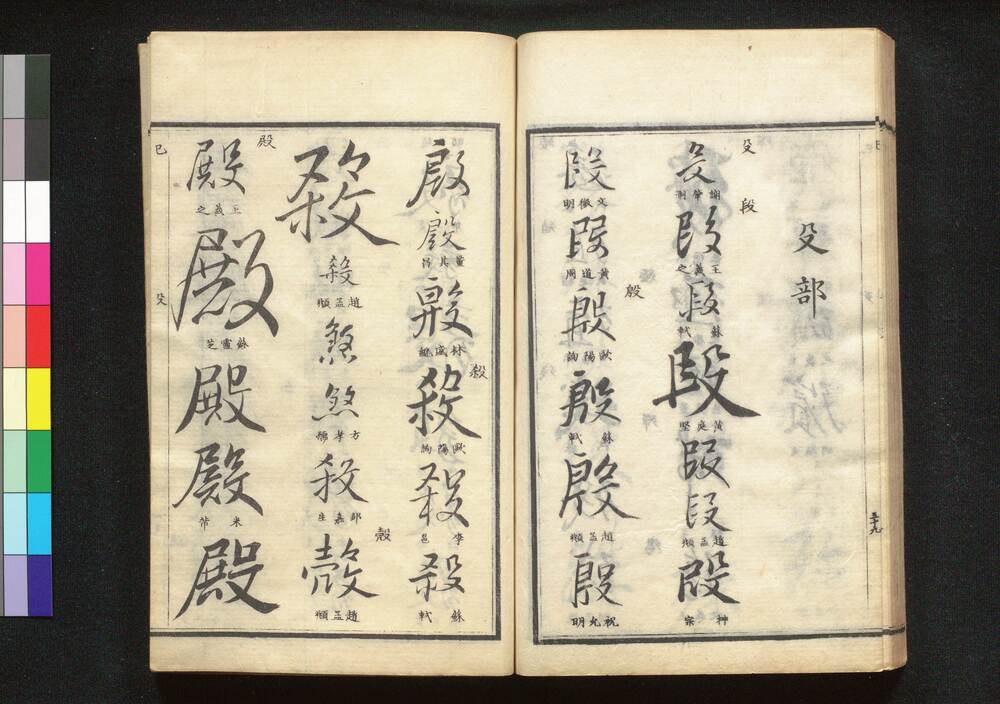 殳部
殳
殳
謝肇淛
段
段
王羲之
段
蘇軾
段
黃庭堅
段
段
趙孟頫
段
神宗
段
文徵明
段
黃道周
殷
殷
歐陽詢
殷
蘇軾
殷
趙孟頫
殷
祝允明
殷
殷
董其昌
殷
殺
殺
歐陽詢
殺
李邕
殺
蘇軾
殺
殺
趙孟頫
煞
煞
方孝孺
殺
郎嘉生
殼
殼
趙孟頫
殿
殿
王羲之
殿
蘇靈芝
殿
殿
米芾
殿
巳
殳
五十九